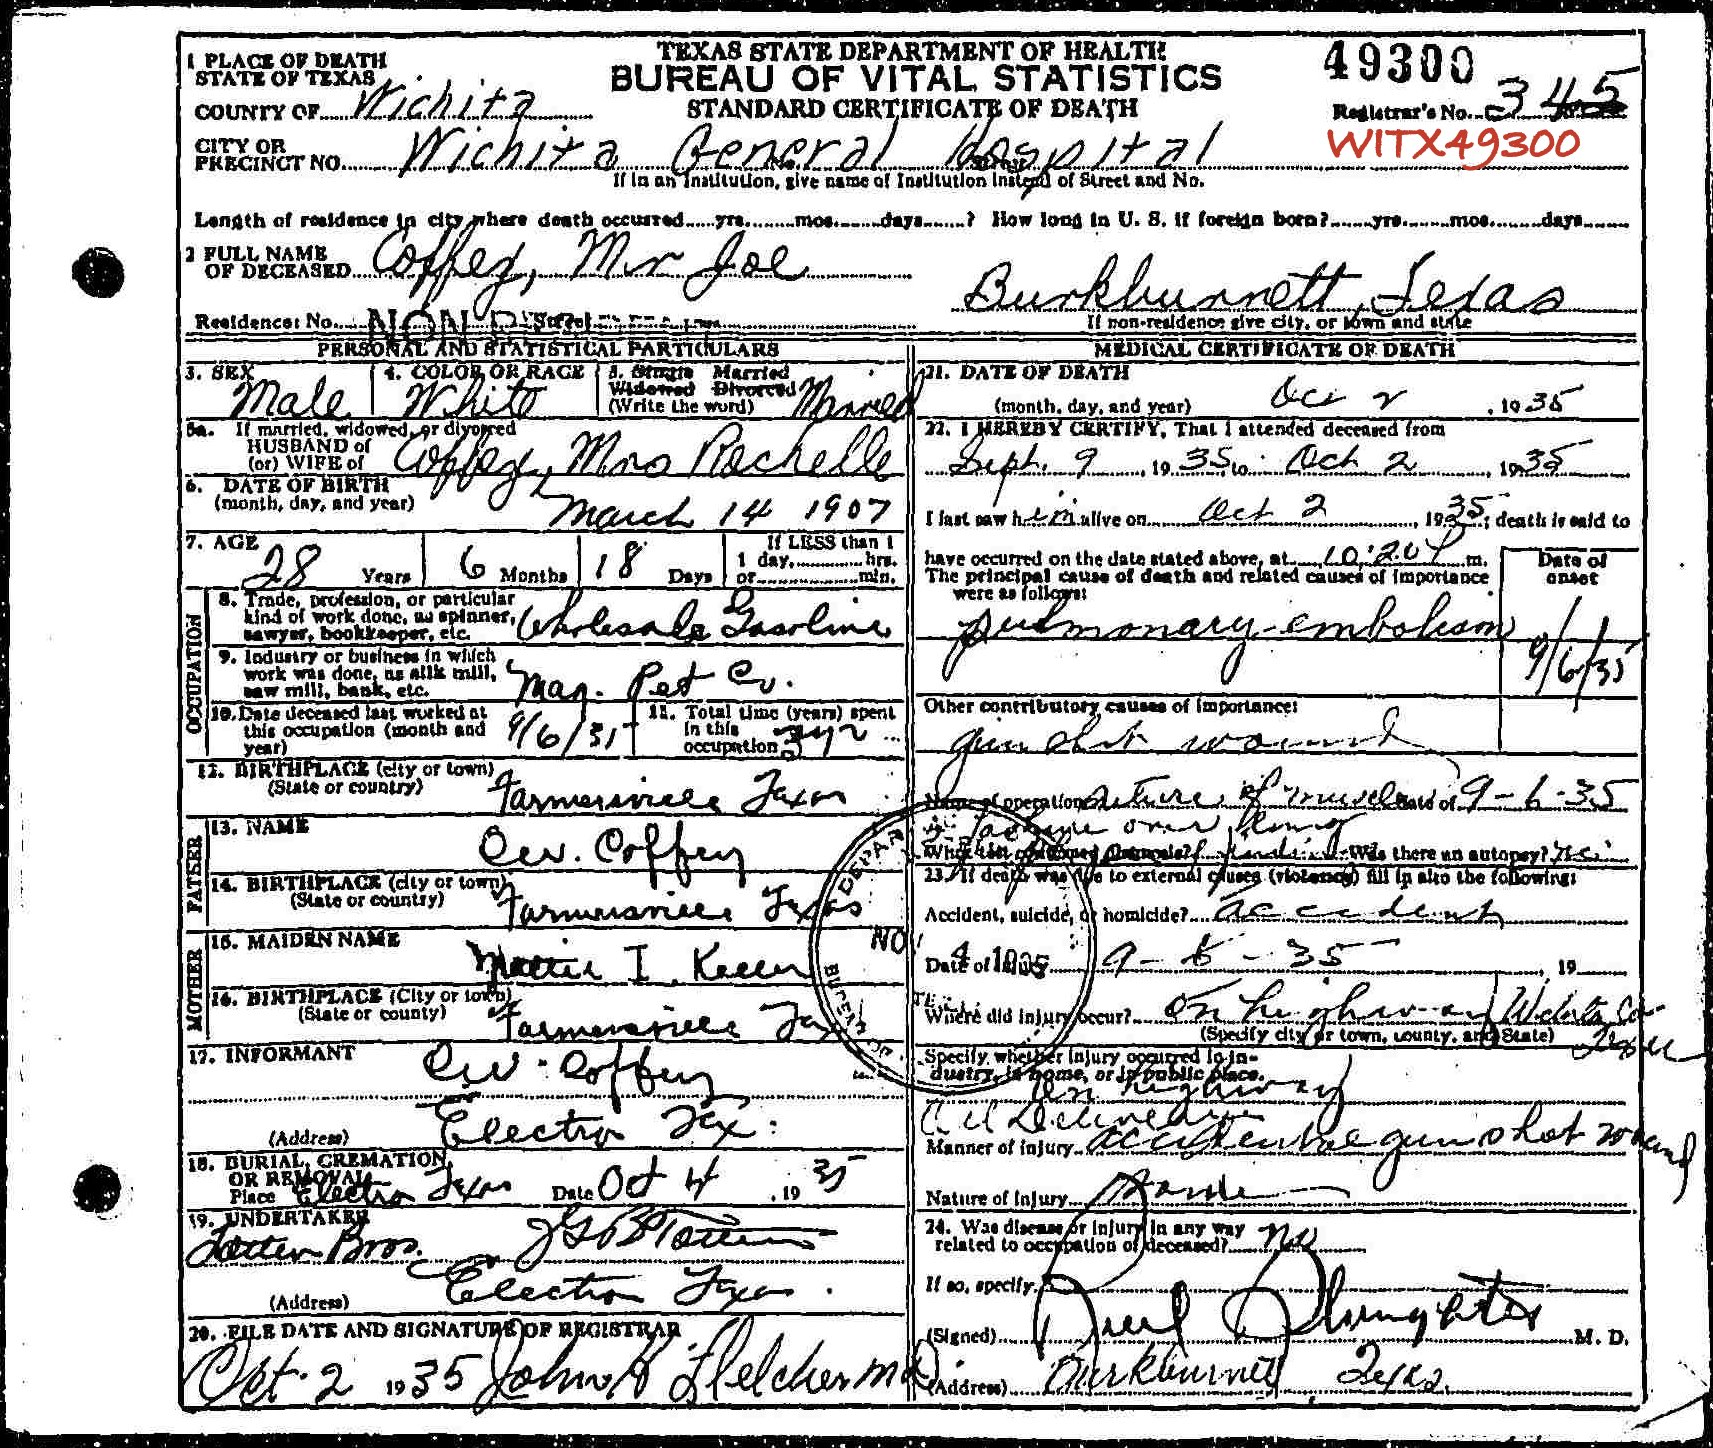 TEXAS STATE DEPARTMENT OF HEALTH
BUREAU OF VITAL STATISTICS
STANDARD CERTIFICATE OF DEATH
49300
Registrar's No. 345
WITX49300
1 PLACE OF DEATH
STATE OF TEXAS
COUNTY OF Wichita
CITY OR
PRECINCT NO. Wichita General Hospital
If in an Institution, give name of Institution instead of Street and No.
Length of residence in city where death occurred yrs. mos. days ? How long in U. S. if foreign born? yrs. mos. days
2 FULL NAME
OF DECEASED Coffey, Mr Joe
Residence: No. NON Street
Burkburnett, Texas
If non-residence give city, or town and state
PERSONAL AND STATISTICAL PARTICULARS
3. SEX
Male
4. COLOR OR RACE
White
5. Single Married
Widowed Divorced
(Write the word) Married
5a. If married, widowed, or divorced
HUSBAND of
(or) WIFE of Coffey, Mrs Rochelle
6. DATE OF BIRTH
(month, day, and year) March 14 1907
7. AGE
28 Years 6 Months 18 Days
If LESS than 1
1 day, hrs.
or min.
OCCUPATION
8. Trade, profession, or particular
kind of work done, as spinner,
sawyer, bookkeeper, etc. Wholesale Gasoline
9. Industry or business in which
work was done, as silk mill,
saw mill, bank, etc. Mag. Pet Co.
10. Date deceased last worked at
this occupation (month and
year) 9/6/35
11. Total time (years) spent
in this
occupation 3 yr
12. BIRTHPLACE (city or town)
(State or country) Farmersville Texas
FATHER
13. NAME
O.W. Coffey
14. BIRTHPLACE (city or town)
(State or country) Farmersville Texas
MOTHER
15. MAIDEN NAME
Mattie I. Keller
16. BIRTHPLACE (City or town)
(State or county) Farmersville Tex
17. INFORMANT O.W. Coffey
(Address) Electra Tex.
18. BURIAL, CREMATION
OR REMOVAL
Place Electra Texas Date Oct 4, 1935
19. UNDERTAKER
Totten Bros.
(Address) Electra Texas.
20. FILE DATE AND SIGNATURE OF REGISTRAR
Oct. 2 1935 John A Fletcher MD.
MEDICAL CERTIFICATE OF DEATH
21. DATE OF DEATH
(month, day, and year) Oct 2, 1935
22. I HEREBY CERTIFY, That I attended deceased from
Sept. 9, 1935, to Oct 2, 1935
I last saw him alive on Oct 2, 1935; death is said to
have occurred on the date stated above, at 10:20 P m.
The principal cause of death and related causes of importance
were as follows:
Date of
onset
pulmonary embolism
9/6/35
Other contributory causes of importance:
gun shot wound
Name of operation suture of muscle Date of 9-6-35
What test confirmed diagnosis? Was there an autopsy? no
23. If death was due to external causes (violence) fill in also the following:
Accident, suicide, or homicide? accident
Date of injury 9-6-35, 19
Where did injury occur? On highway Wichita Co.
Texas
(Specify city or town, county, and State)
Specify whether injury occurred in in-
dustry, in home, or in public place.
on highway
Manner of injury accidental gun shot wound
Nature of injury
24. Was disease or injury in any way
related to occupation of deceased? no
If so, specify
(Signed) M. D.
(Address) Burkburnett Texas.